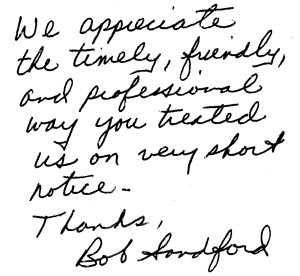 We appreciate
the timely, friendly,
and professional
way you treated
us on very short
notice-
Thanks,
Bob Sandford